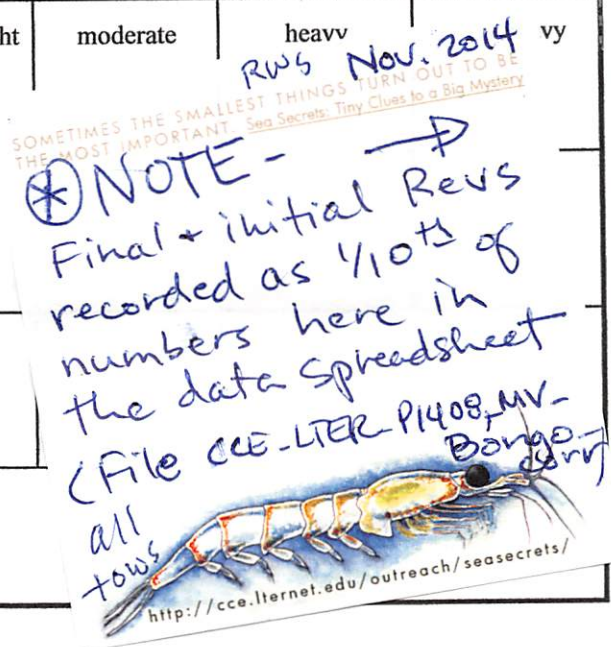 ht moderate heavy vy
RWS Nov. 2014
SOMETIMES THE SMALLEST THINGS TURN OUT TO BE
THE MOST IMPORTANT. Sea Secrets: Tiny Clues to a Big Mystery
* NOTE - →
Final + initial Revs
recorded as 1/10ths of
numbers here in
the data spreadsheet
(File CCE-LTER-P1408_MV-
Bongo-
corr)
all
tows
http://cce.lternet.edu/outreach/seasecrets/